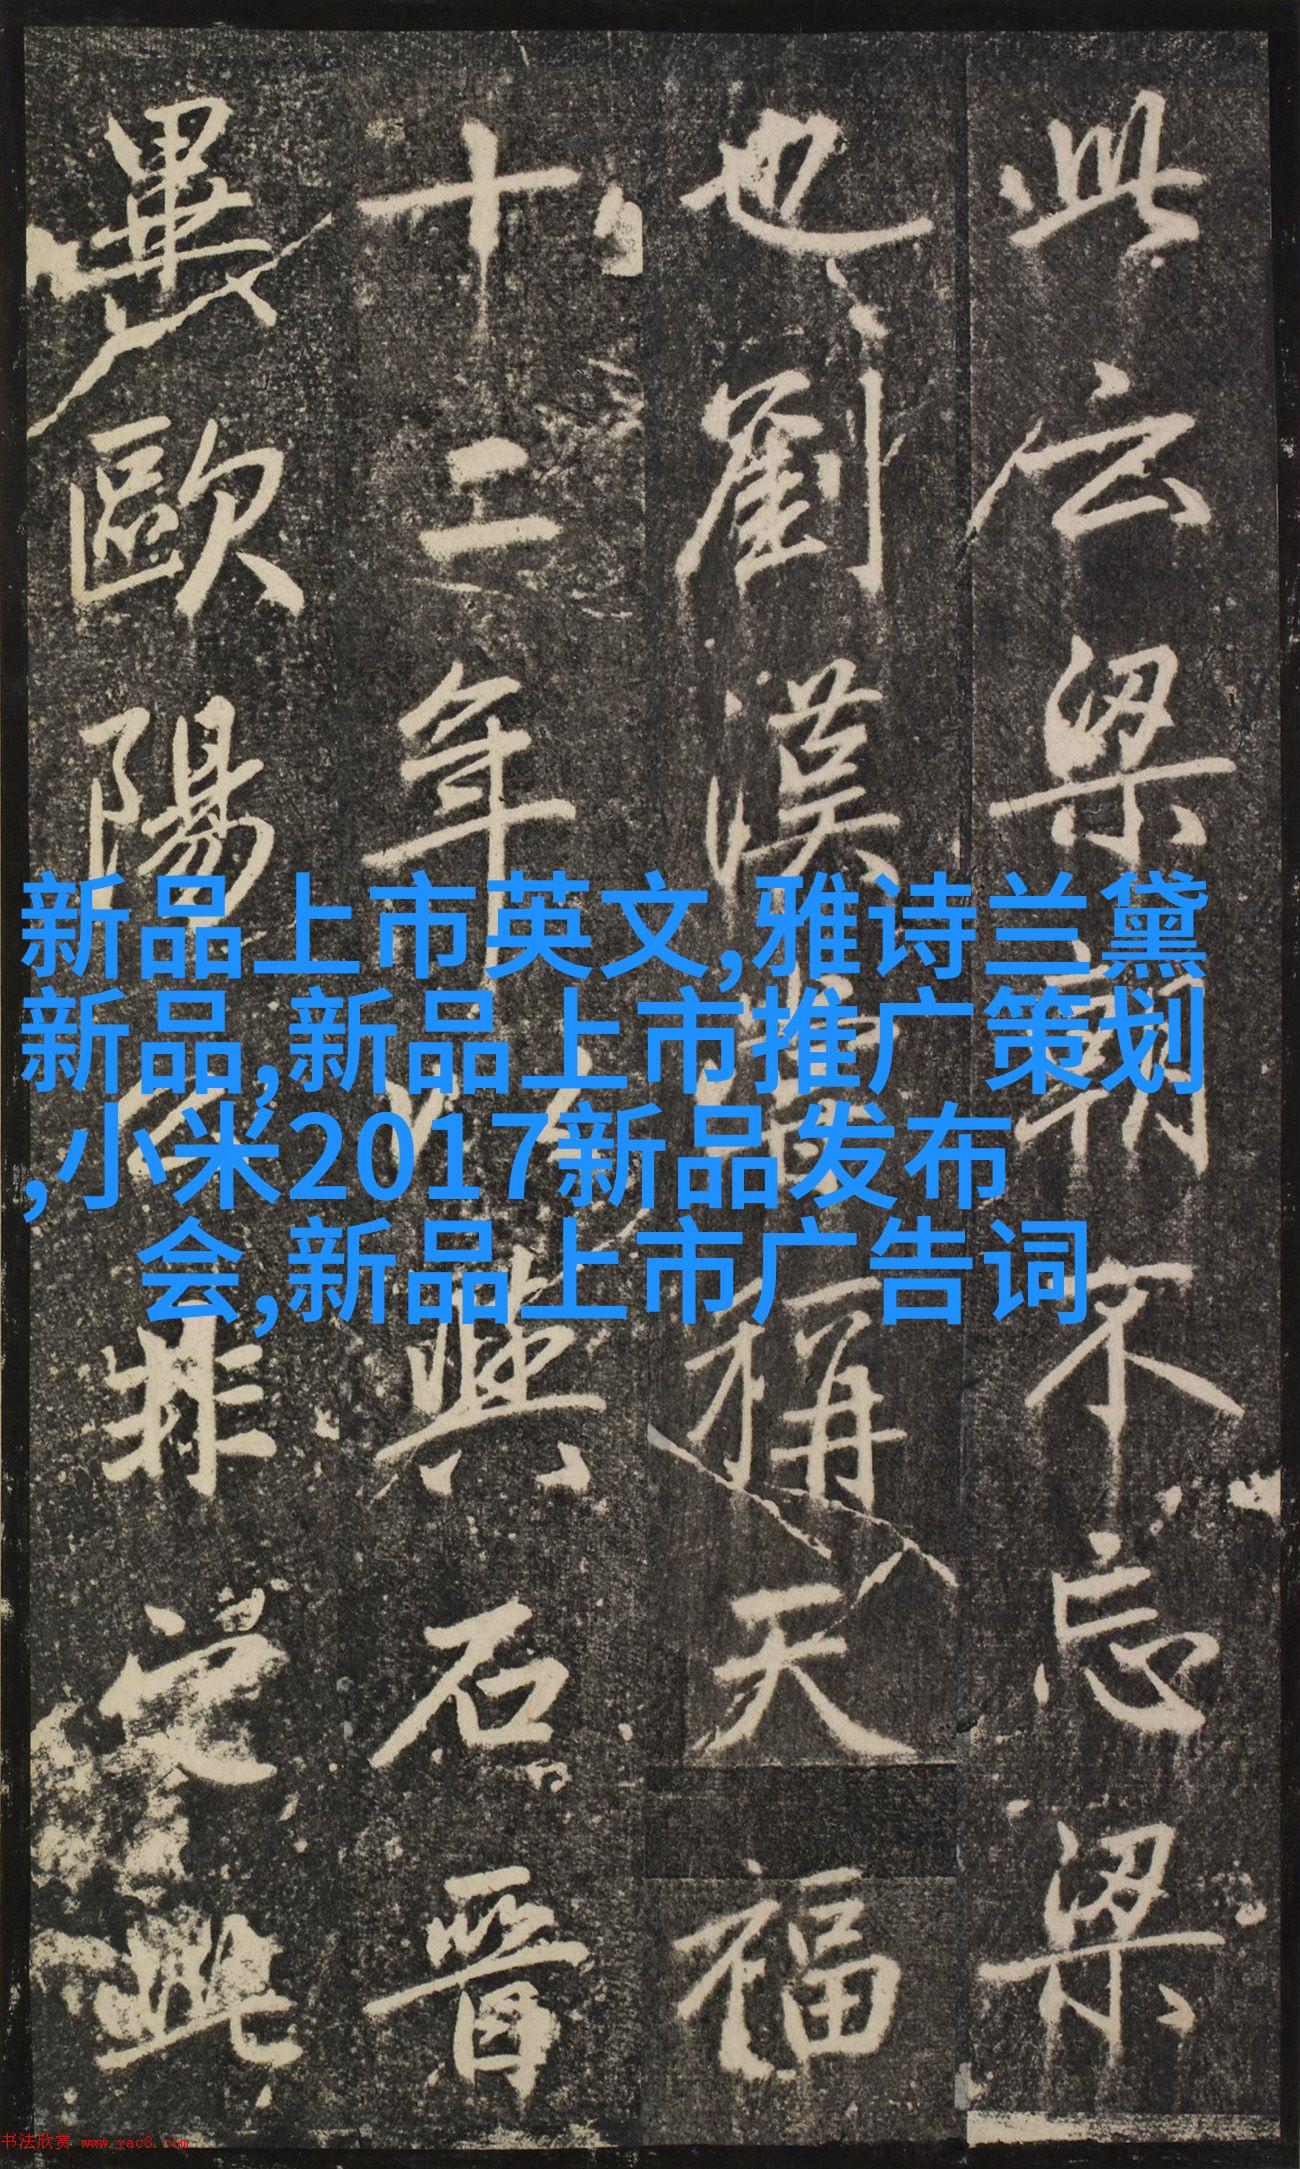 此云梁朝不忘梁
也劉漢稱天福
十二年與石晉
歐陽非此
新品上市英文,雅诗兰黛
新品,新品上市推广策划
,小米2017新品发布
会,新品上市广告词
书法欣赏 www.yac8.com